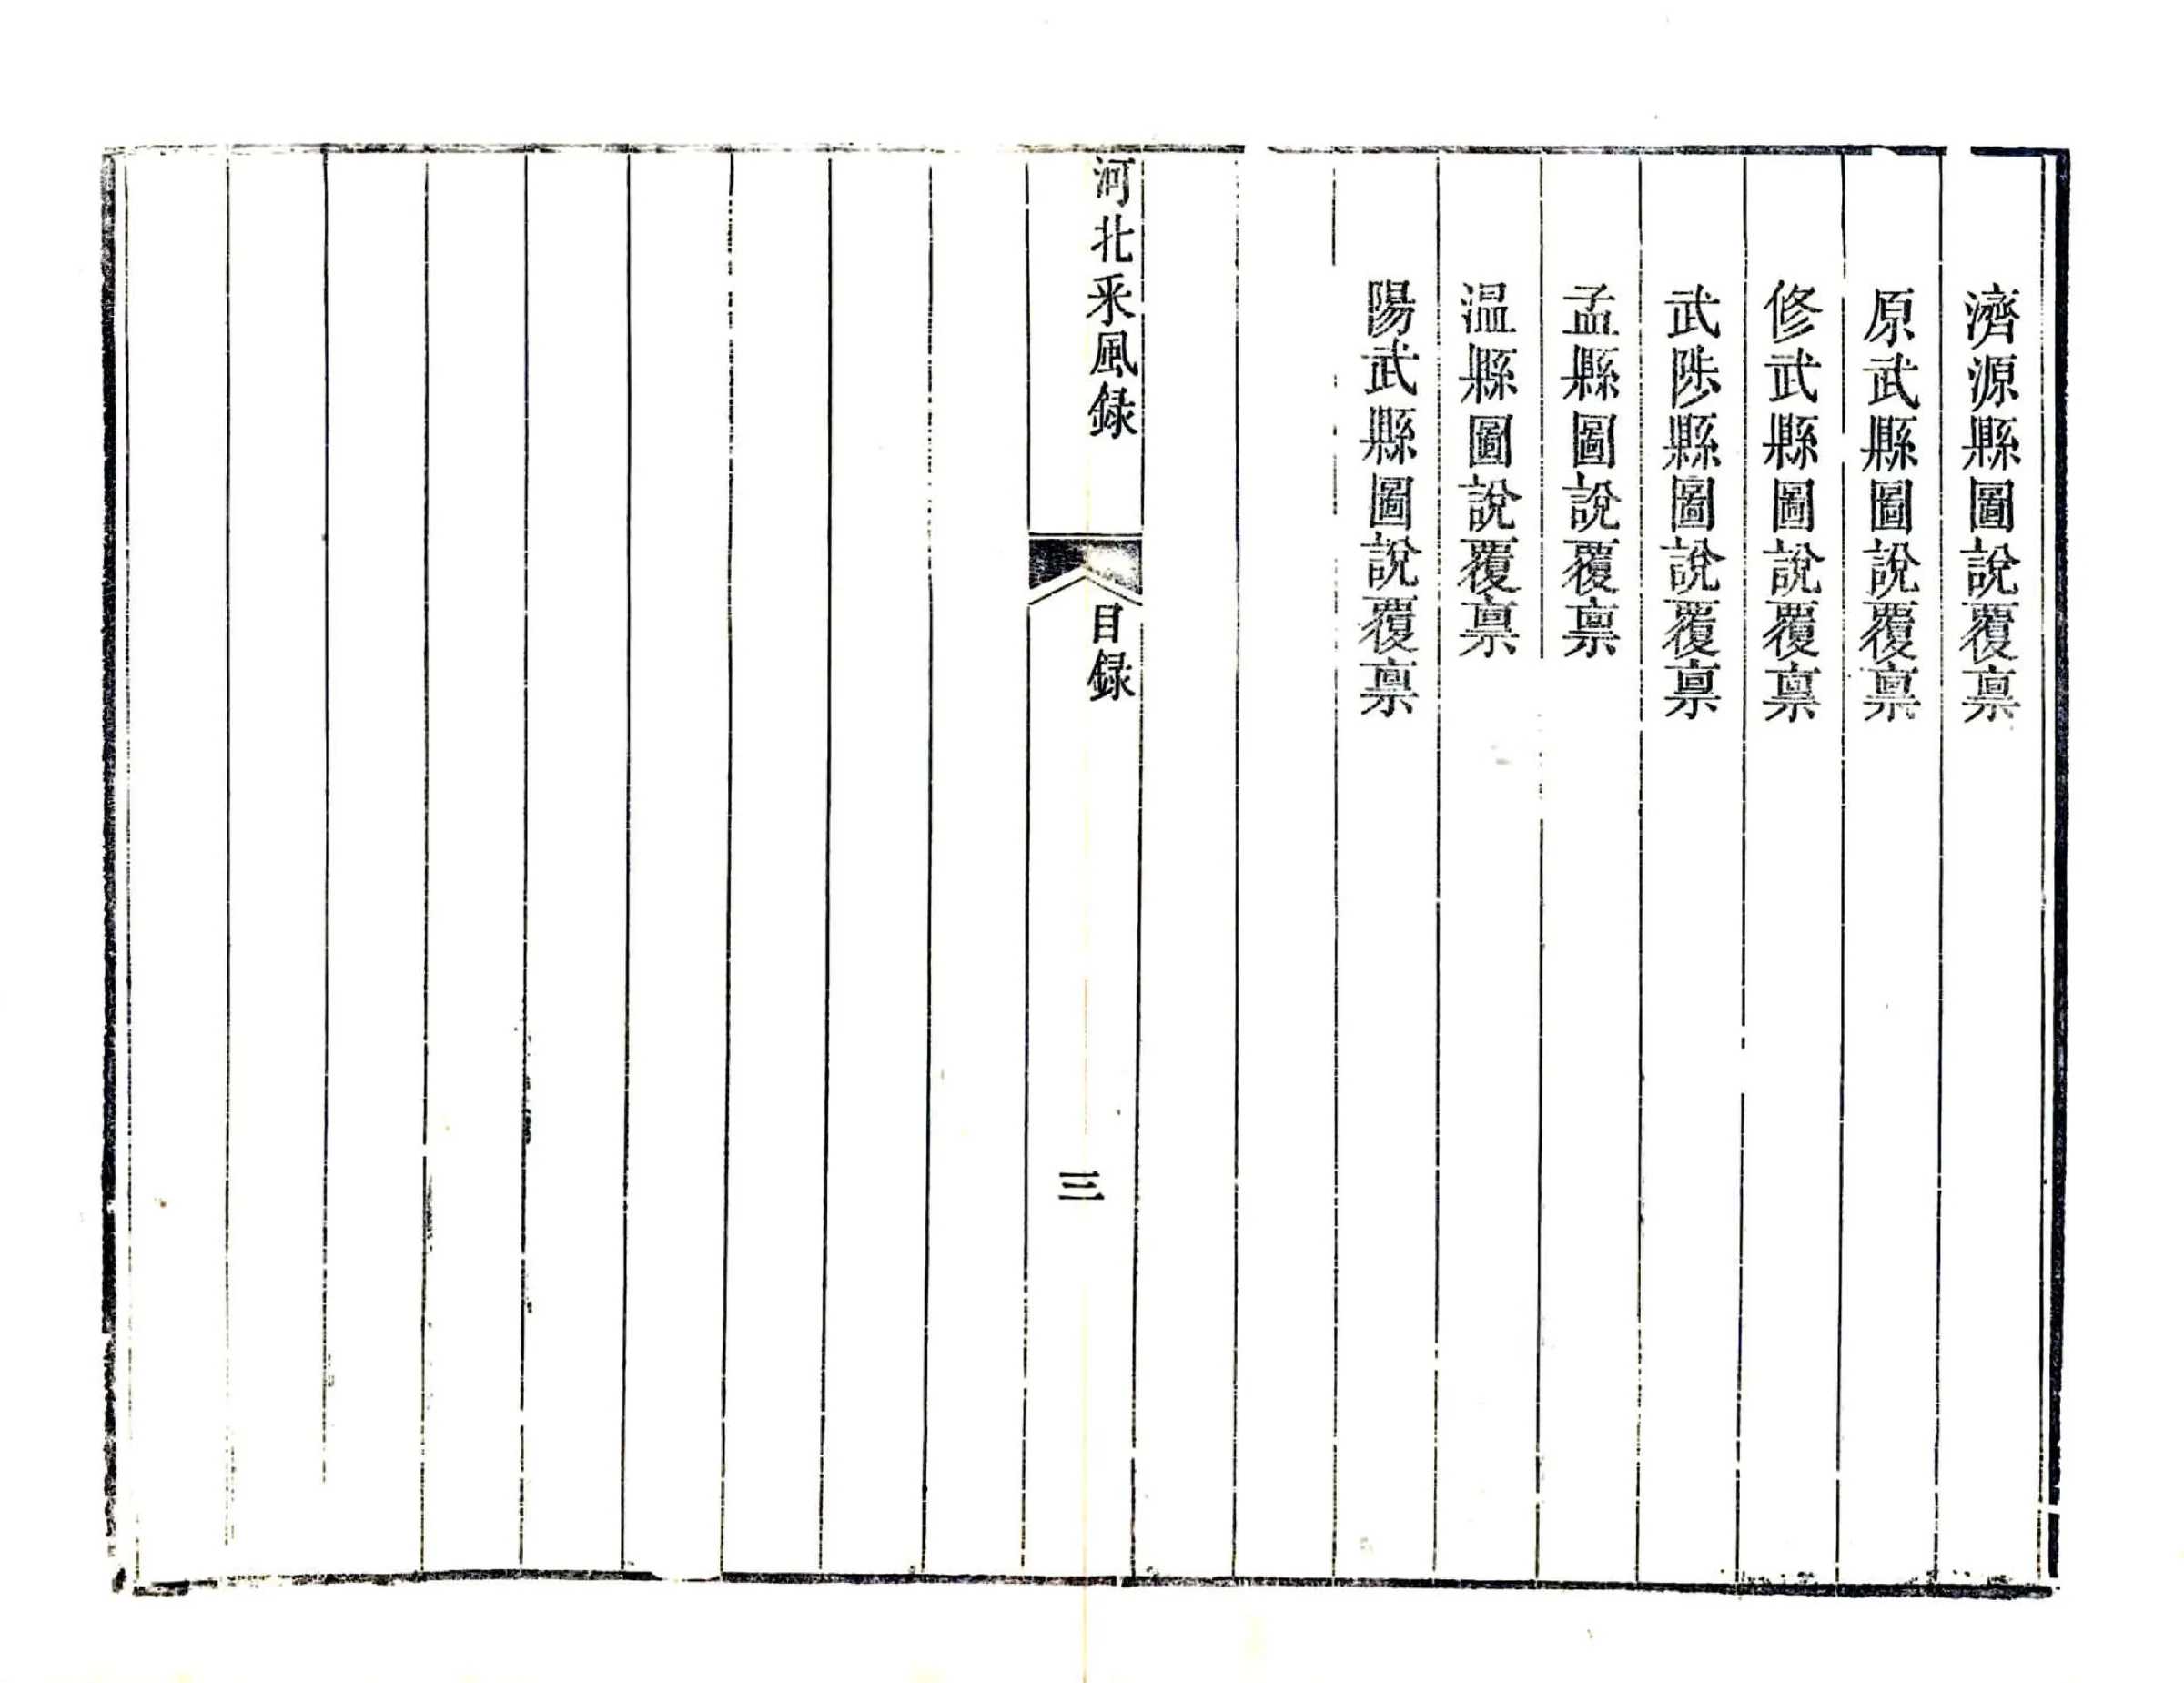 濟源縣圖說覆稟
原武縣圖說覆稟
修武縣圖說覆稟
武陟縣圖說覆稟
孟縣圖說覆稟
温縣圖說覆稟
陽武縣圖說覆稟
河北采風録
目録
三